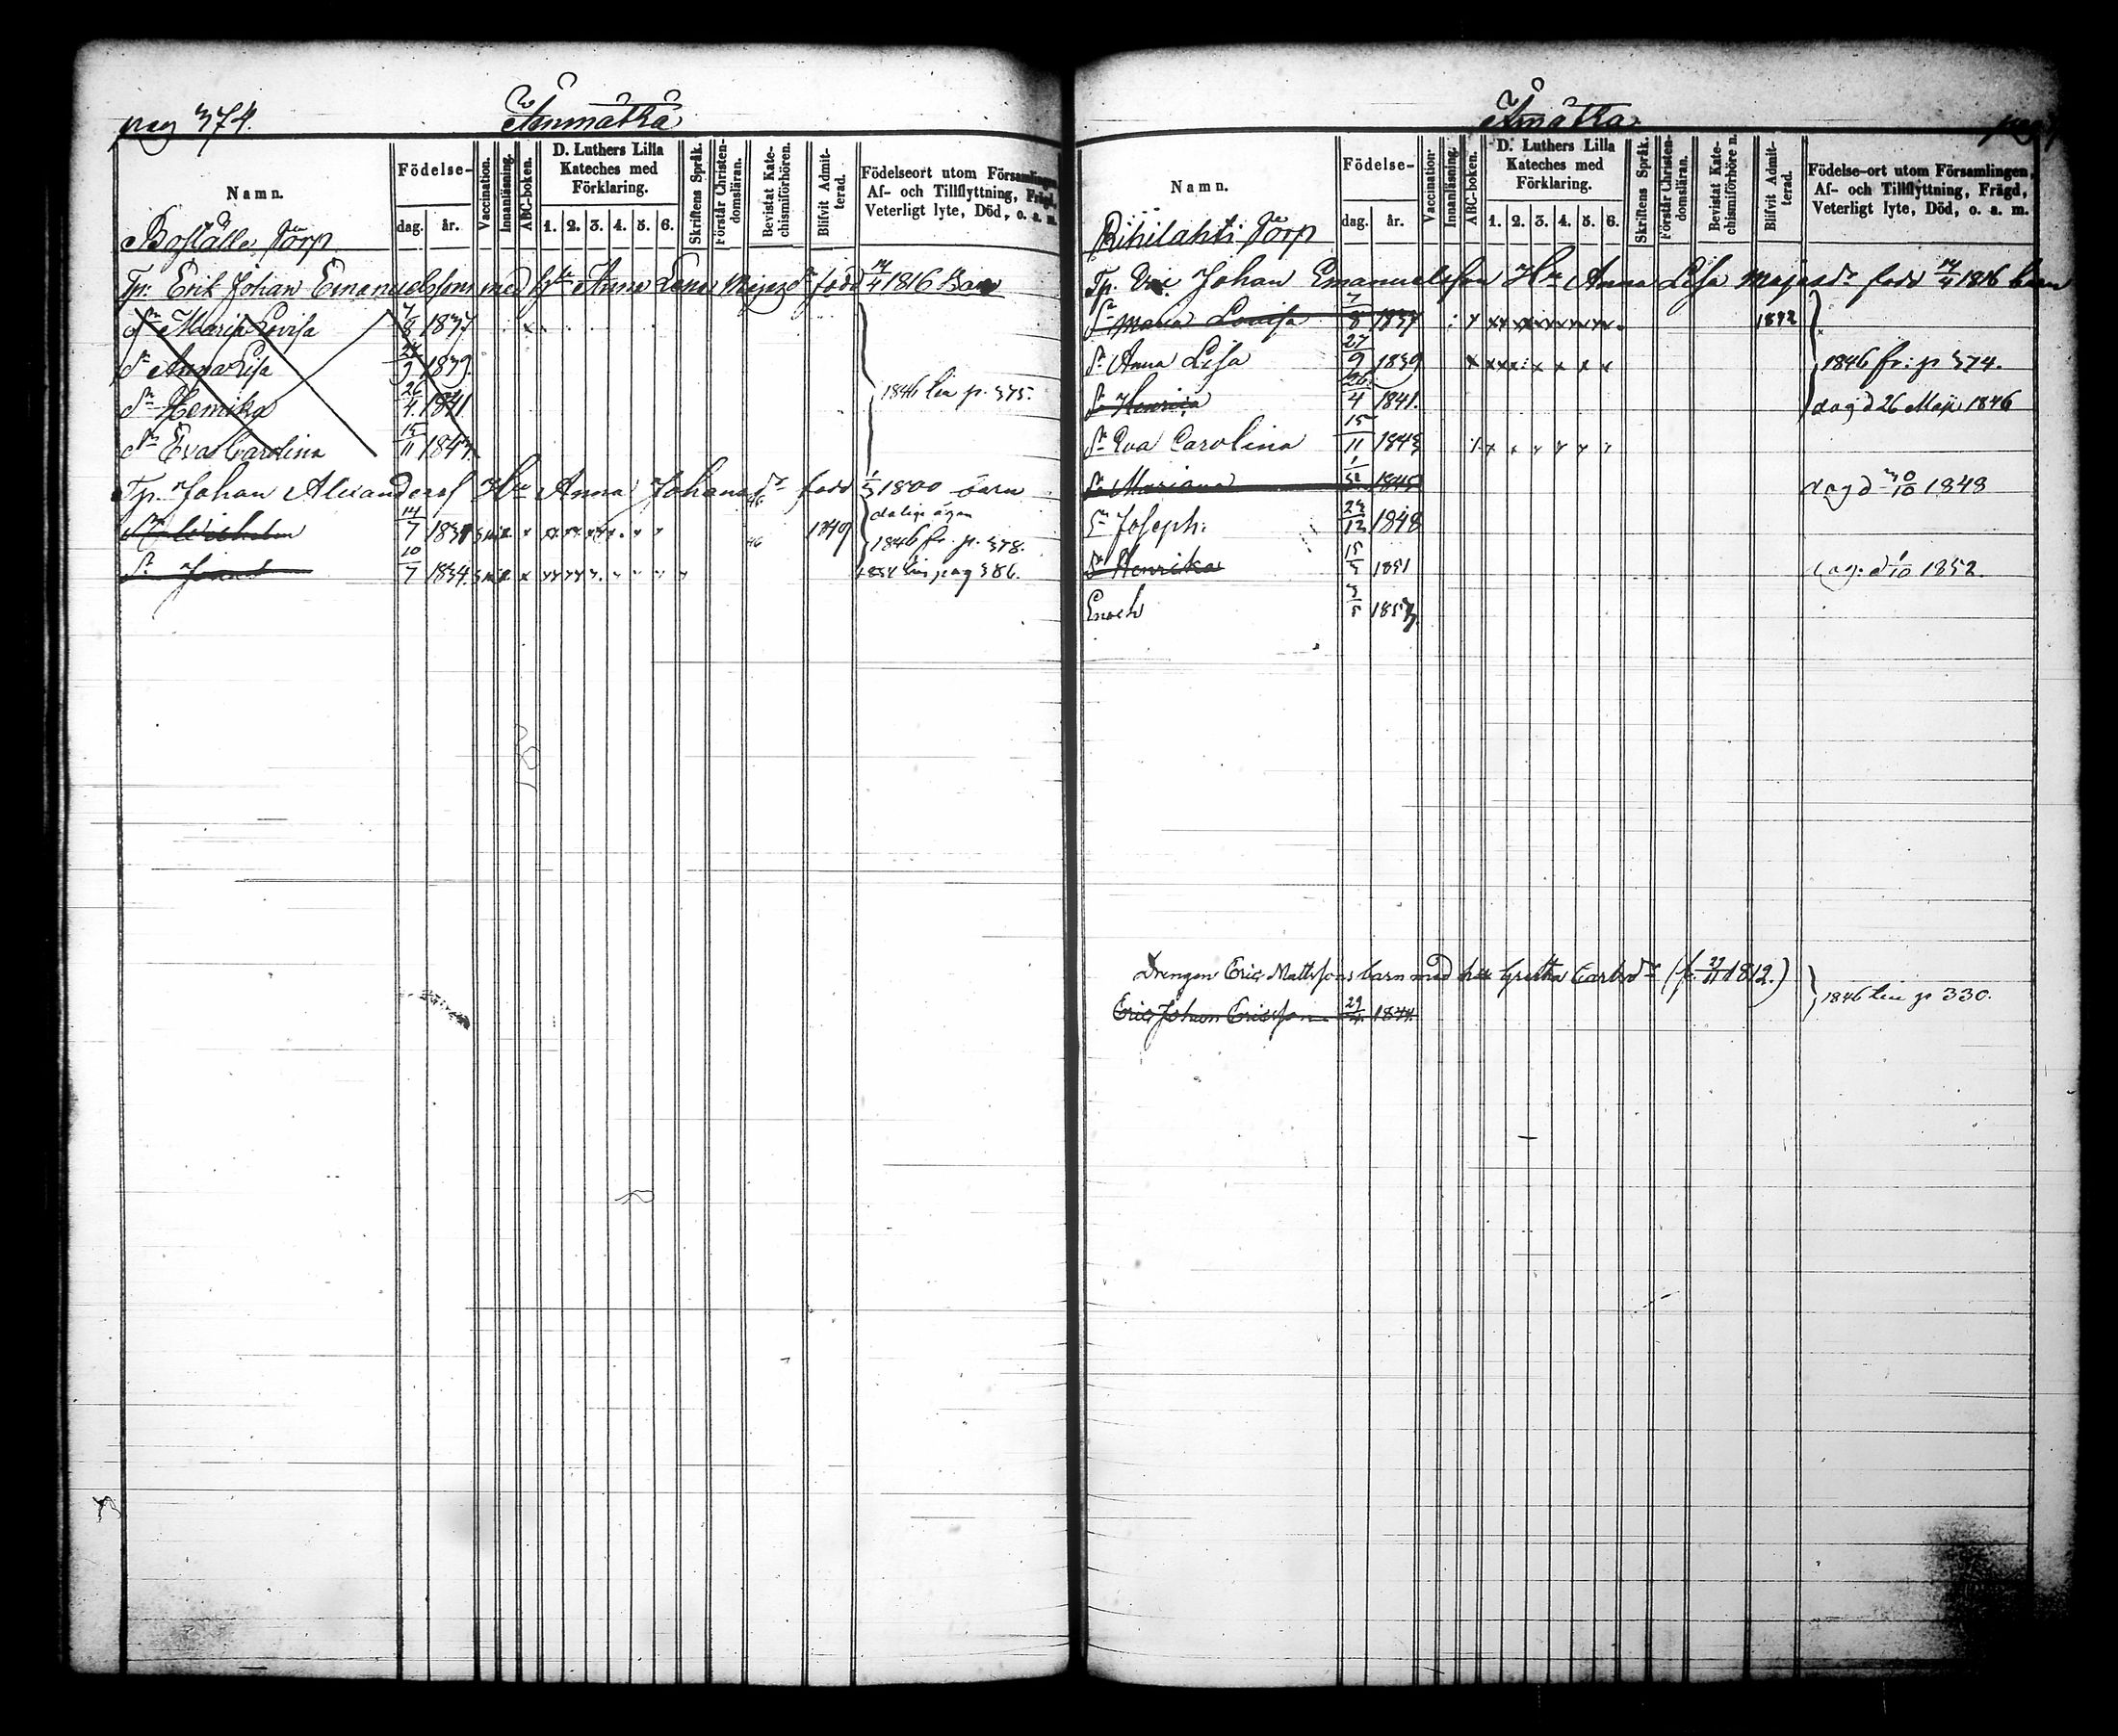 pag 374.
Ämmätkä
Namn.
Födelse-
dag.
år.
Vaccination.
Innanläsning.
ABC-boken.
D. Luthers Lilla
Kateches med
Förklaring.
1. 2. 3. 4. 5. 6.
Skriftens Språk.
Förstår Christen-
domsläran.
Bevistat Kate-
chismiförhören.
Blifvit Admit-
terad.
Födelseort utom Församlingen,
Af- och Tillflyttning, Frägd,
Veterligt lyte, Död, o. a. m.
Boställe Torp
Tp. Erik Johan Emanuelsson med Anna Lena född 14/4 1816 Barn
Maria Lovisa 7/8 1837
Anna Lisa 27/9 1839
Henrika 26/4 1841
Eva Carolina 15/11 1843
1846 p. 375.
Tp. Johan Alexanders Hu Anna Johansdr född 1800 barn
14/7 1831 1849
1846 fr. p. 378.
10/7 1834
pag 386.
Ämätkä
Namn.
Födelse-
dag.
år.
Vaccination.
Innanläsning.
ABC-boken.
D. Luthers Lilla
Kateches med
Förklaring.
1. 2. 3. 4. 5. 6.
Skriftens Språk.
Förstår Christen-
domsläran.
Bevistat Kate-
chismiförhören.
Blifvit Admit-
terad.
Födelse-ort utom Församlingen,
Af- och Tillflyttning, Frägd,
Veterligt lyte, Död, o. a. m.
Rihilahti Torp
Tp. Eric Johan Emanuelsson Hu Anna Lisa Majasdr född 14/4 1816 barn
Maria Lovisa 7/8 1837
Anna Lisa 27/9 1839 1846 fr. p 374.
Henrica 26/4 1841. död 26 Maji 1846
Eva Carolina 15/11 1843
Mariana 1845 död 30/10 1848
Joseph. 1848
Henrika 1851 1/10 1852.
Enoch 3/5 1853
Drengen Eric Mattssons barn med Gretha Carlsdr (f. 1812.)
Eric Johan Ericsson 29/4 1844
1846 p 330.